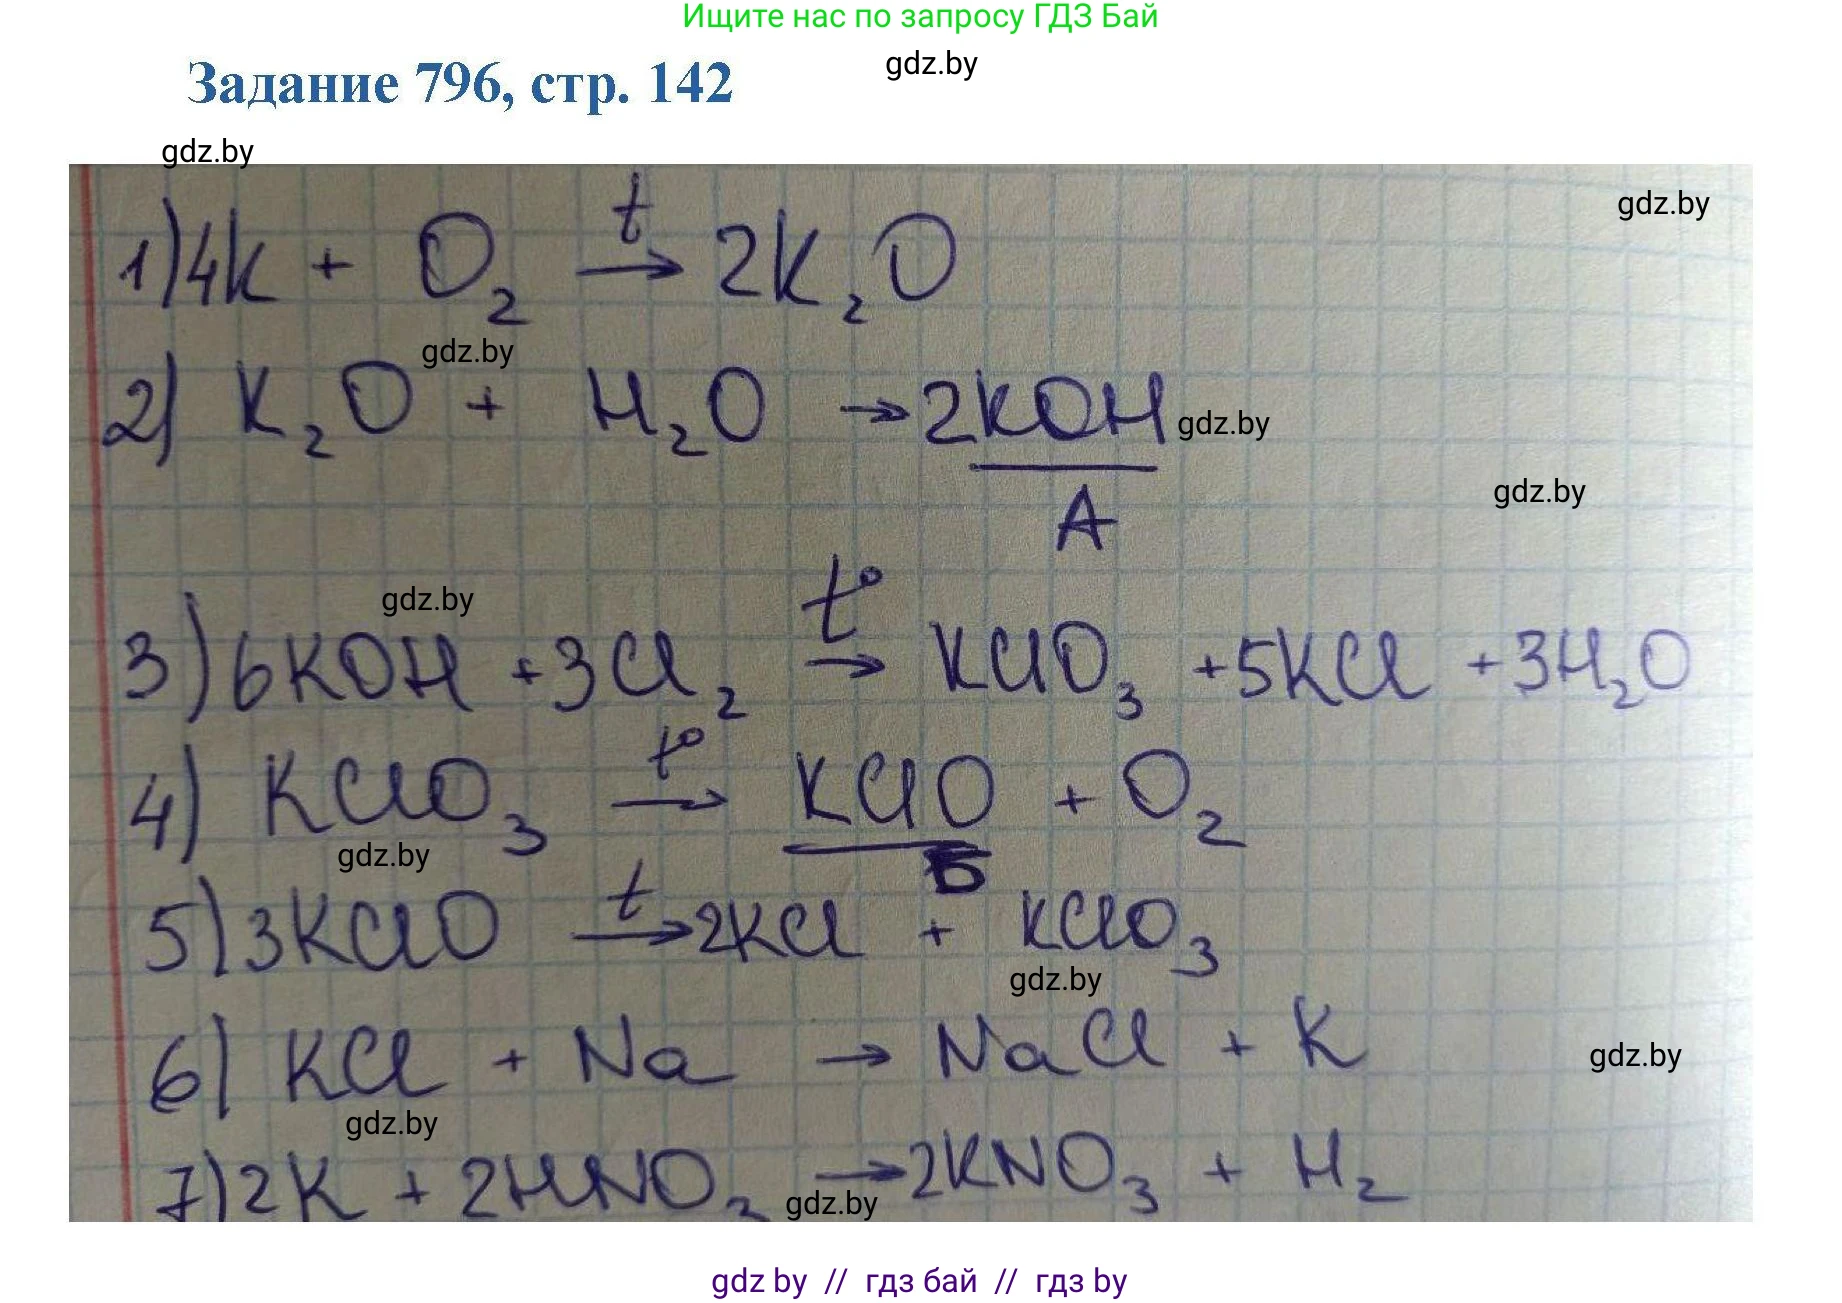 Ищите нас по запросу ГДЗ Бай
gdz.by
Задание 796, стр. 142
gdz.by
gdz.by
1) 4K + O₂ →ᵗ 2K₂O
gdz.by
2) K₂O + H₂O → 2KOH
gdz.by
A
gdz.by
gdz.by
3) 6KOH + 3Cl₂ →ᵗ° KClO₃ + 5KCl + 3H₂O
4) KClO₃ →ᵗ° KClO + O₂
gdz.by
Б
5) 3KClO →ᵗ 2KCl + KClO₃
gdz.by
6) KCl + Na → NaCl + K
gdz.by
gdz.by
7) 2K + 2HNO₃ → 2KNO₃ + H₂
gdz.by
gdz by // гдз бай // гдз by